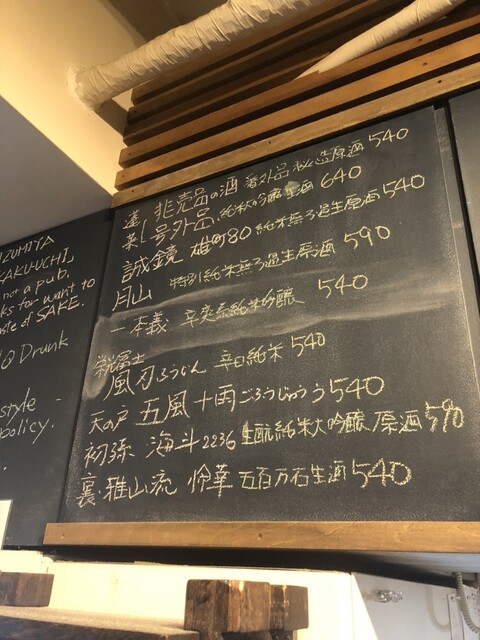 ZUMIYA
KAKU-UCHI,
not a pub.
ks for want to
ste of SAKE.
Drunk
style
policy.
蓬 非売品の酒 番外品 純造原酒 540
蒸し号外品 純米大吟醸生酒 640
誠鏡 雄町80 純米無ろ過生原酒 540
月山 特別純米無ろ過生原酒 590
一本義 辛爽系純米吟醸 540
栄冨士
風刃 ふうじん 辛口純米 540
天の戸 五風十雨 ごふうじゅうう 540
初孫 海斗2236 生酛純米大吟醸原酒 590
裏・雅山流 怜華 五百万石生酒 540